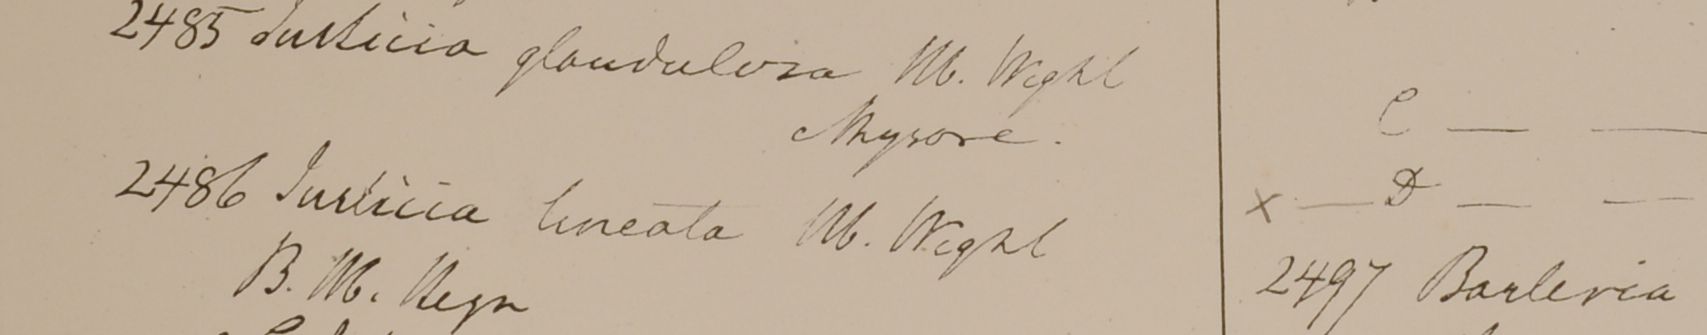 2485 Justicia glandulosa Hb. Wight
Mysore.
2486 Justicia lineata Hb. Wight
B. Hb. Heyn
C — —
x — D — —
2497 Barleria